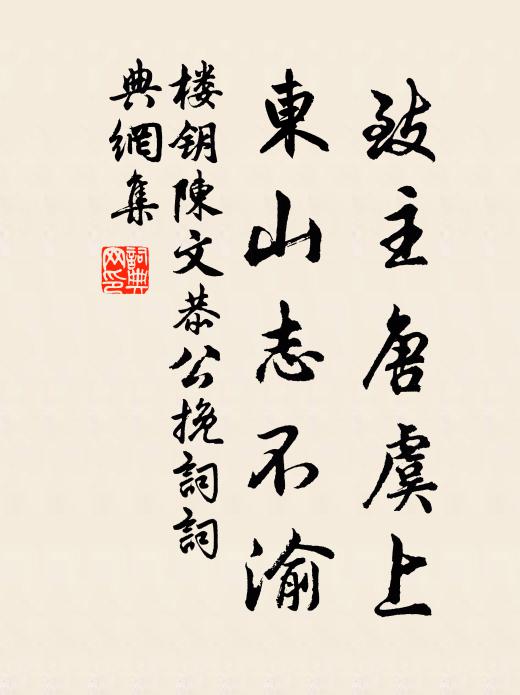 致主唐虞上
東山志不渝
楼钥陳文恭公挽詞詞
典網集
詞典網印